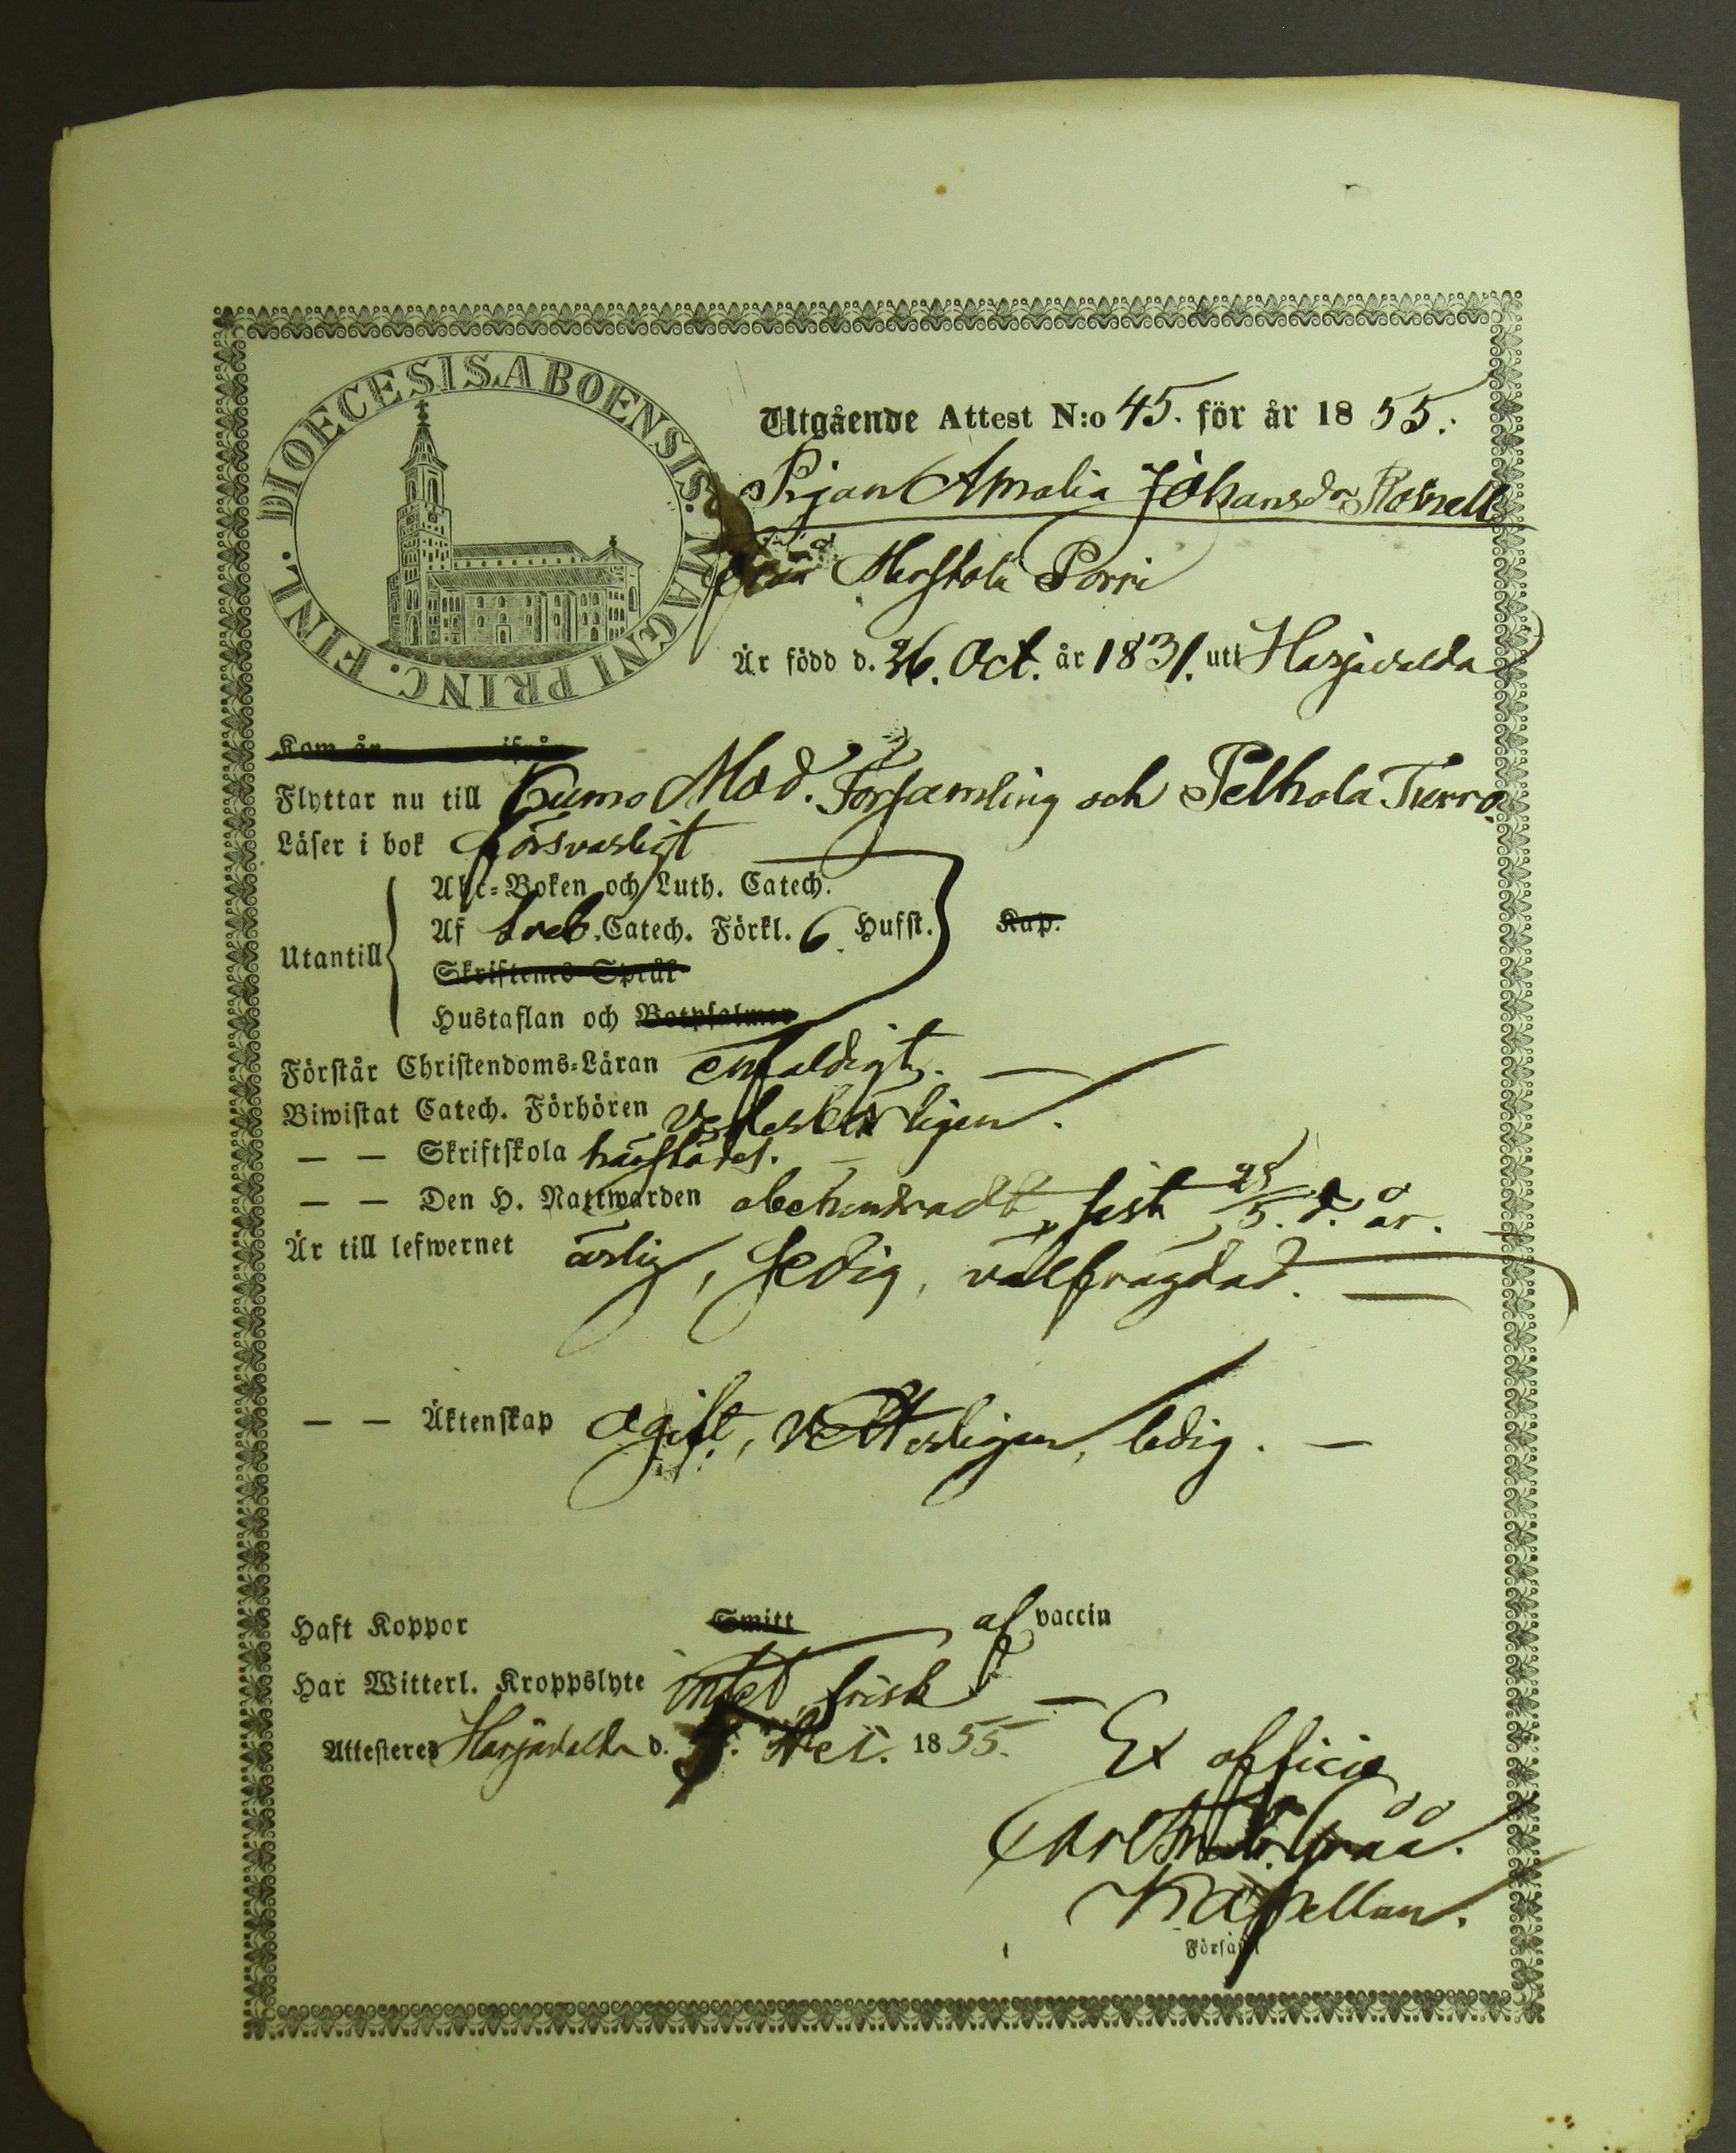 DIOECESIS ABOENSIS. MAGNI PRINC. FINL.
Utgående Attest N:o 45. för år 1855.
Pigan Amalia Johansdr
från Merstola Porri
Är född d. 26. Oct. år 1831. uti Harjavalda
Kom år ifrån
Flyttar nu till Cumo Mod. Församling och Pelhola Turro.
Läser i bok försvarligt
Utantill
Abc-Boken och Luth. Catech.
Af Sveb. Catech. Förkl. 6 Hufst. Kap.
Skriftenes Språk
Hustaflan och Botpsalmer
Förstår Christendoms-Läran enfaldigt. —
Biwistat Catech. Förhören vederbörligen.
— — Skriftskola härstädes. —
— — Den H. Nattwarden obehindradt, sist 28/5. d. år.
Är till lefwernet ärlig, sedig, välfrägdad. —
— — Äktenskap ogift, vetterligen, ledig. —
Haft Koppor Smitt af vaccin
Har Witterl. Kroppslyte intet, frisk —
Attesteres Harjavalda d. 1855.
Ex officio
Carl Fredr. Gråå.
Kapellan.
Församl